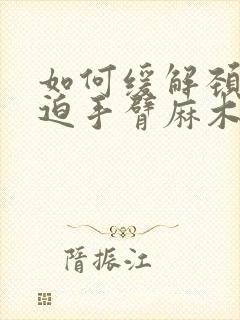 如何缓解颈
迫手臂麻木
隋振江